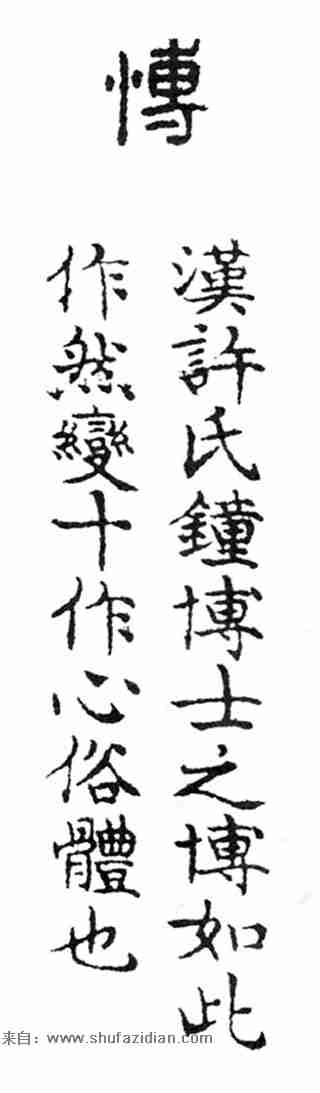 愽
漢許氏鐘博士之博如此
作然變十作心俗體也
来自：www.shufazidian.com